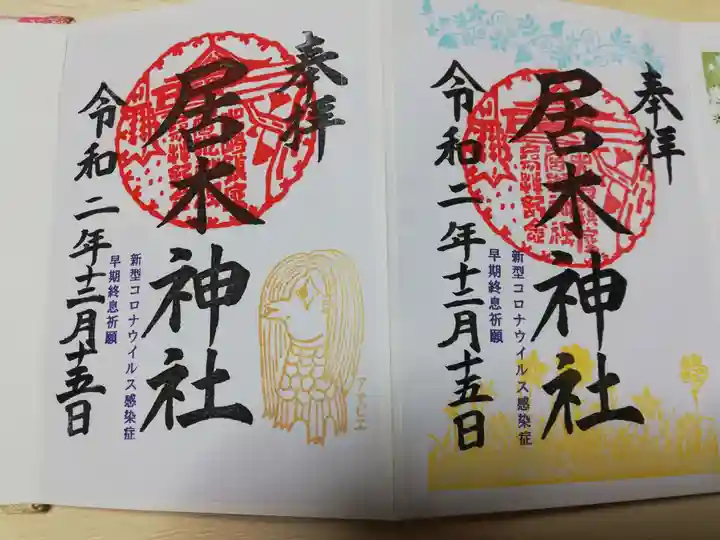 奉拝
居木神社
新型コロナウイルス感染症
早期終息祈願
令和二年十二月十五日
アマビエ
奉拝
居木神社
新型コロナウイルス感染症
早期終息祈願
令和二年十二月十五日